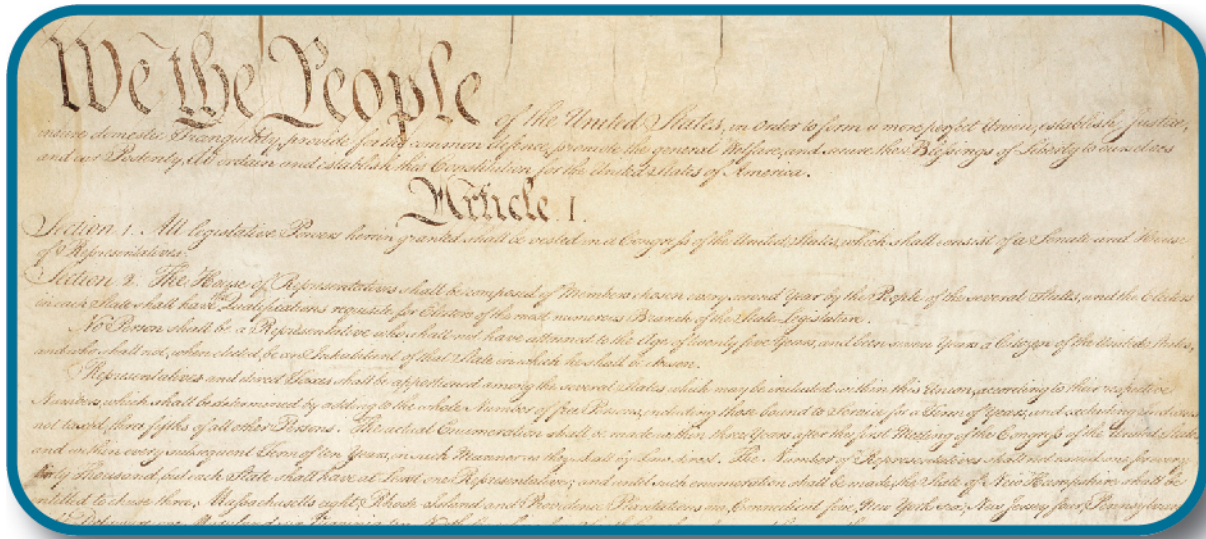 We the People
of the United States, in Order to form a more perfect Union, establish Justice,
insure domestic Tranquility, provide for the common defence, promote the general Welfare, and secure the Blessings of Liberty to ourselves
and our Posterity, do ordain and establish this Constitution for the United States of America.
Article. I.
Section. 1. All legislative Powers herein granted shall be vested in a Congress of the United States, which shall consist of a Senate and House
of Representatives.
Section. 2. The House of Representatives shall be composed of Members chosen every second Year by the People of the several States, and the Electors
in each State shall have Qualifications requisite for Electors of the most numerous Branch of the State Legislature.
No Person shall be a Representative who shall not have attained to the Age of twenty five Years, and been seven Years a Citizen of the United States,
and who shall not, when elected, be an Inhabitant of that State in which he shall be chosen.
Representatives and direct Taxes shall be apportioned among the several States which may be included within this Union, according to their respective
Numbers, which shall be determined by adding to the whole Number of free Persons, including those bound to Service for a Term of Years, and excluding Indians
not taxed, three fifths of all other Persons. The actual Enumeration shall be made within three Years after the first Meeting of the Congress of the United States,
and within every subsequent Term of ten Years, in such Manner as they shall by Law direct. The Number of Representatives shall not exceed one for every
thirty Thousand, but each State shall have at Least one Representative; and until such enumeration shall be made, the State of New Hampshire shall be
entitled to chuse three, Massachusetts eight, Rhode Island and Providence Plantations one, Connecticut five, New York six, New Jersey four, Pennsylvania